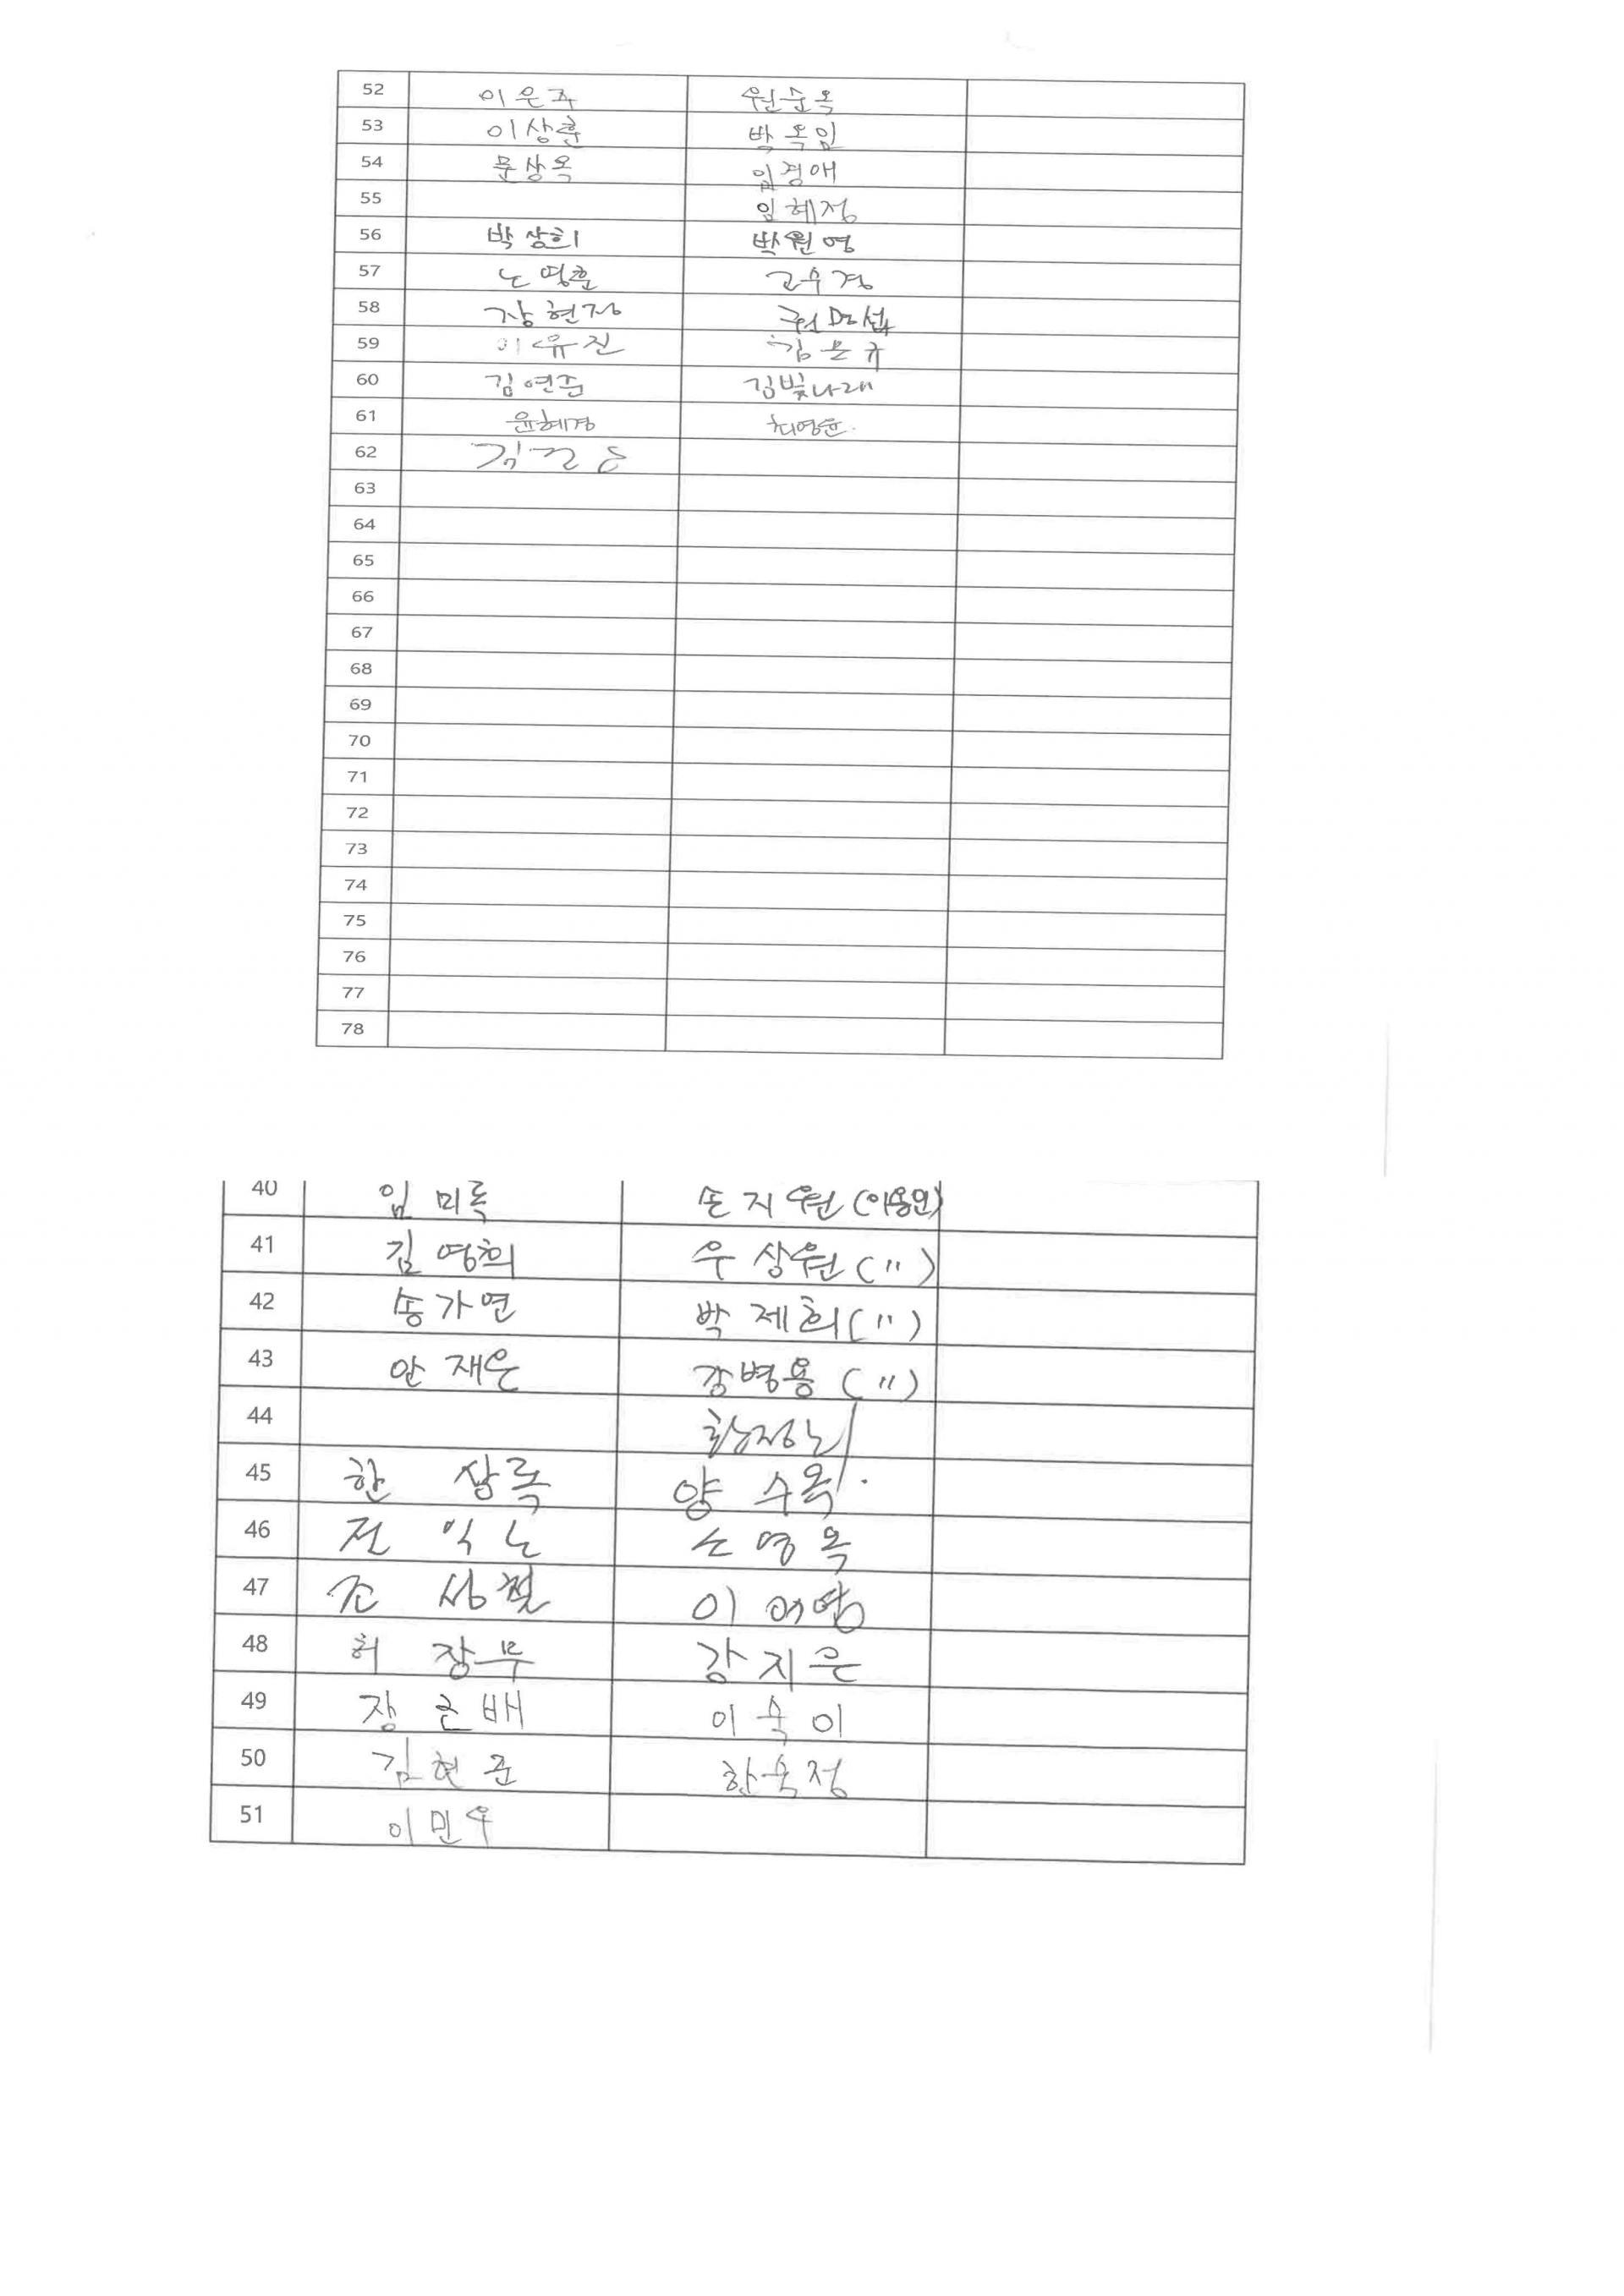 52 이은주 원순옥
53 이상훈 박옥임
54 문상옥 임경애
55 임혜정
56 박상희 박원영
57 노영훈 고우경
58 장현정
59 이유진 김문규
60 김연준 김빛나래
61 윤혜경 최영훈.
62
63
64
65
66
67
68
69
70
71
72
73
74
75
76
77
78
40 임미록 손지원 (이용인)
41 김영희 우상원 (〃)
42 송가연 박제희 (〃)
43 안재은 강병용 (〃)
44
45 한상록 양수옥
46 전익노 손영옥
47 조상철
48 허장무 강지은
49 장근배 이숙이
50 김현준 한옥정
51 이민우